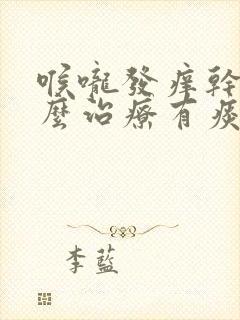 喉嚨發癢幹
麼治療有痰
李藍